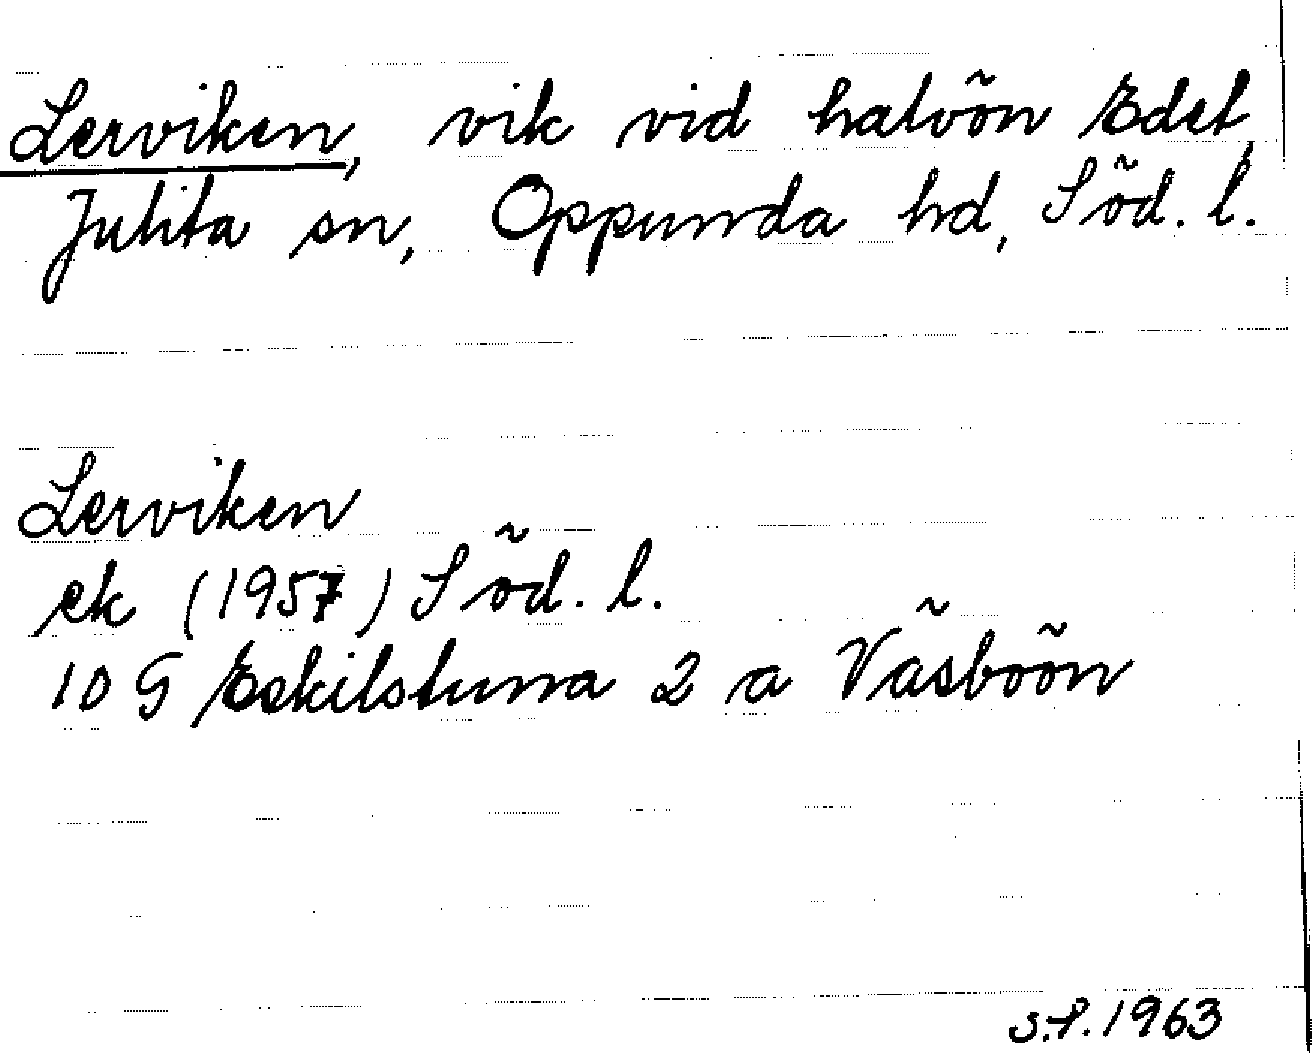 Lerviken, vik vid halvön Edet
Julita sn, Oppunda hd, Söd. l.
Lerviken
ek (1957) Söd. l.
10 G Eskilstuna 2 a Väsböön
S.P. 1963